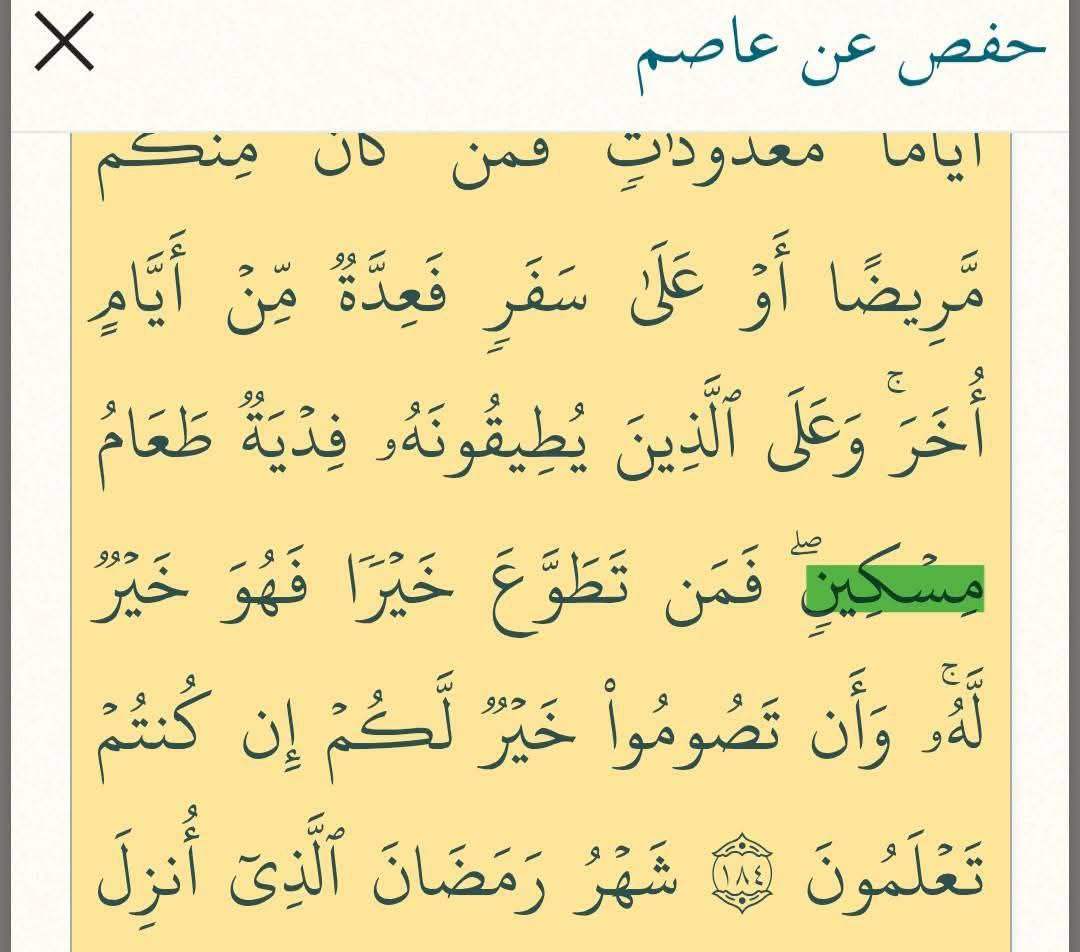 حفص عن عاصم
أَيَّامًا مَّعۡدُودَٰتٖۚ فَمَن كَانَ مِنكُم
مَّرِيضًا أَوۡ عَلَىٰ سَفَرٖ فَعِدَّةٞ مِّنۡ أَيَّامٍ
أُخَرَۚ وَعَلَى ٱلَّذِينَ يُطِيقُونَهُۥ فِدۡيَةٞ طَعَامُ
مِسۡكِينٖۖ فَمَن تَطَوَّعَ خَيۡرٗا فَهُوَ خَيۡرٞ
لَّهُۥۚ وَأَن تَصُومُواْ خَيۡرٞ لَّكُمۡ إِن كُنتُمۡ
تَعۡلَمُونَ ١٨٤ شَهۡرُ رَمَضَانَ ٱلَّذِيٓ أُنزِلَ